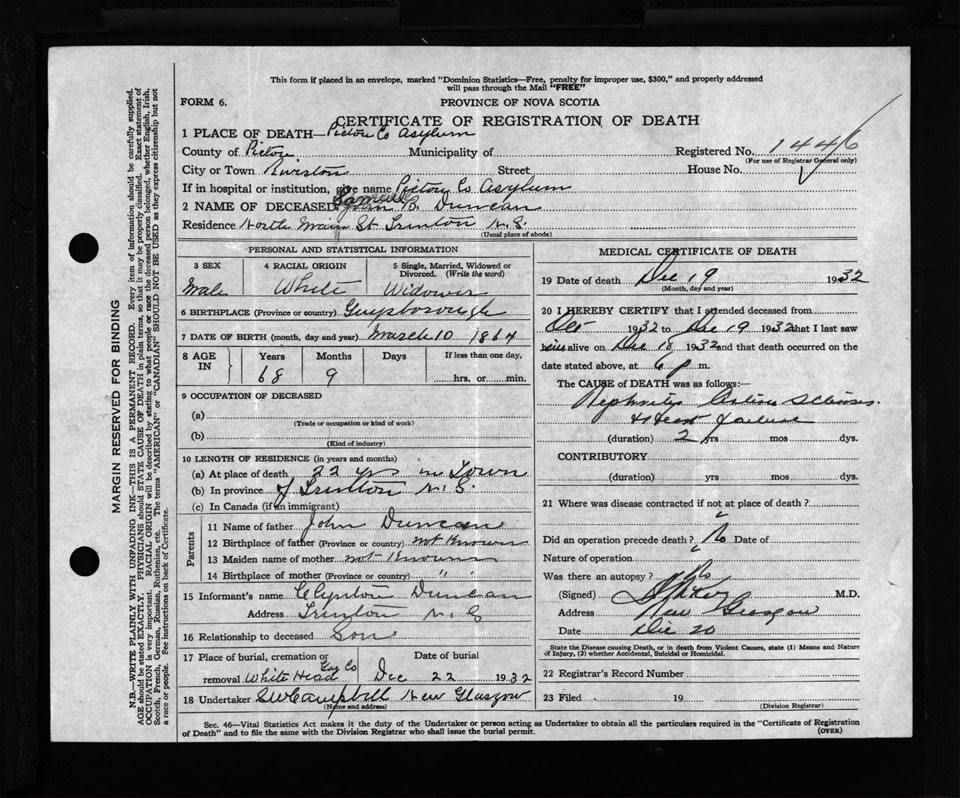 This form if placed in an envelope, marked "Dominion Statistics—Free, penalty for improper use, $300," and properly addressed
will pass through the Mail "FREE"
FORM 6.
PROVINCE OF NOVA SCOTIA
CERTIFICATE OF REGISTRATION OF DEATH
1 PLACE OF DEATH—Pictou Co Asylum
County of Pictou Municipality of Registered No. 1446
(For use of Registrar General only)
City or Town Riverton Street House No.
If in hospital or institution, give name Pictou Co Asylum
Samuel
2 NAME OF DECEASED John B. Duncan
Residence North Main St Trenton N.S.
(Usual place of abode)
PERSONAL AND STATISTICAL INFORMATION
3 SEX 4 RACIAL ORIGIN 5 Single, Married, Widowed or Divorced. (Write the word)
Male White Widower
6 BIRTHPLACE (Province or country) Guysborough
7 DATE OF BIRTH (month, day and year) March 10 1864
8 AGE IN Years Months Days If less than one day,
68 9 hrs. or min.
9 OCCUPATION OF DECEASED
(a)
(Trade or occupation or kind of work)
(b)
(Kind of industry)
10 LENGTH OF RESIDENCE (in years and months)
(a) At place of death 22 yrs in Town
(b) In province of Trenton N.S.
(c) In Canada (if an immigrant)
Parents
11 Name of father John Duncan
12 Birthplace of father (Province or country) not Known
13 Maiden name of mother not Known
14 Birthplace of mother (Province or country) " "
15 Informant's name Clynton Duncan
Address Trenton N.S
16 Relationship to deceased Son
17 Place of burial, cremation or removal White Head Guy Co Date of burial Dec 22 1932
18 Undertaker S W Campbell New Glasgow
(Name and address)
MEDICAL CERTIFICATE OF DEATH
19 Date of death Dec 19 1932
(Month, day and year)
20 I HEREBY CERTIFY that I attended deceased from
Oct 1932 to Dec 19 1932 that I last saw
him alive on Dec 18 1932 and that death occurred on the
date stated above, at 6 p m.
The CAUSE of DEATH was as follows:—
Nephritis
Heart failure
(duration) 2 yrs mos dys.
CONTRIBUTORY
(duration) yrs mos dys.
21 Where was disease contracted if not at place of death?
Did an operation precede death? No Date of
Nature of operation
Was there an autopsy? No
(Signed) M.D.
Address New Glasgow
Date Dec 20
State the Disease causing Death, or in death from Violent Causes, state (1) Means and Nature
of Injury, (2) whether Accidental, Suicidal or Homicidal.
22 Registrar's Record Number
23 Filed 19
(Division Registrar)
Sec. 46—Vital Statistics Act makes it the duty of the Undertaker or person acting as Undertaker to obtain all the particulars required in the "Certificate of Registration
of Death" and to file the same with the Division Registrar who shall issue the burial permit.
(OVER)
MARGIN RESERVED FOR BINDING
N.B.—WRITE PLAINLY WITH UNFADING INK—THIS IS A PERMANENT RECORD. Every item of information should be carefully supplied.
AGE should be stated EXACTLY. PHYSICIANS should STATE CAUSE OF DEATH in plain terms, so that it may be properly classified. Exact statement of
OCCUPATION is very important. RACIAL ORIGIN will be described by stating to what people or race the deceased person belonged, whether English, Irish,
Scotch, French, German, Russian, Ruthenian, etc. The terms "AMERICAN" or "CANADIAN" SHOULD NOT BE USED as they express citizenship but not
a race or people. See instructions on back of Certificate.